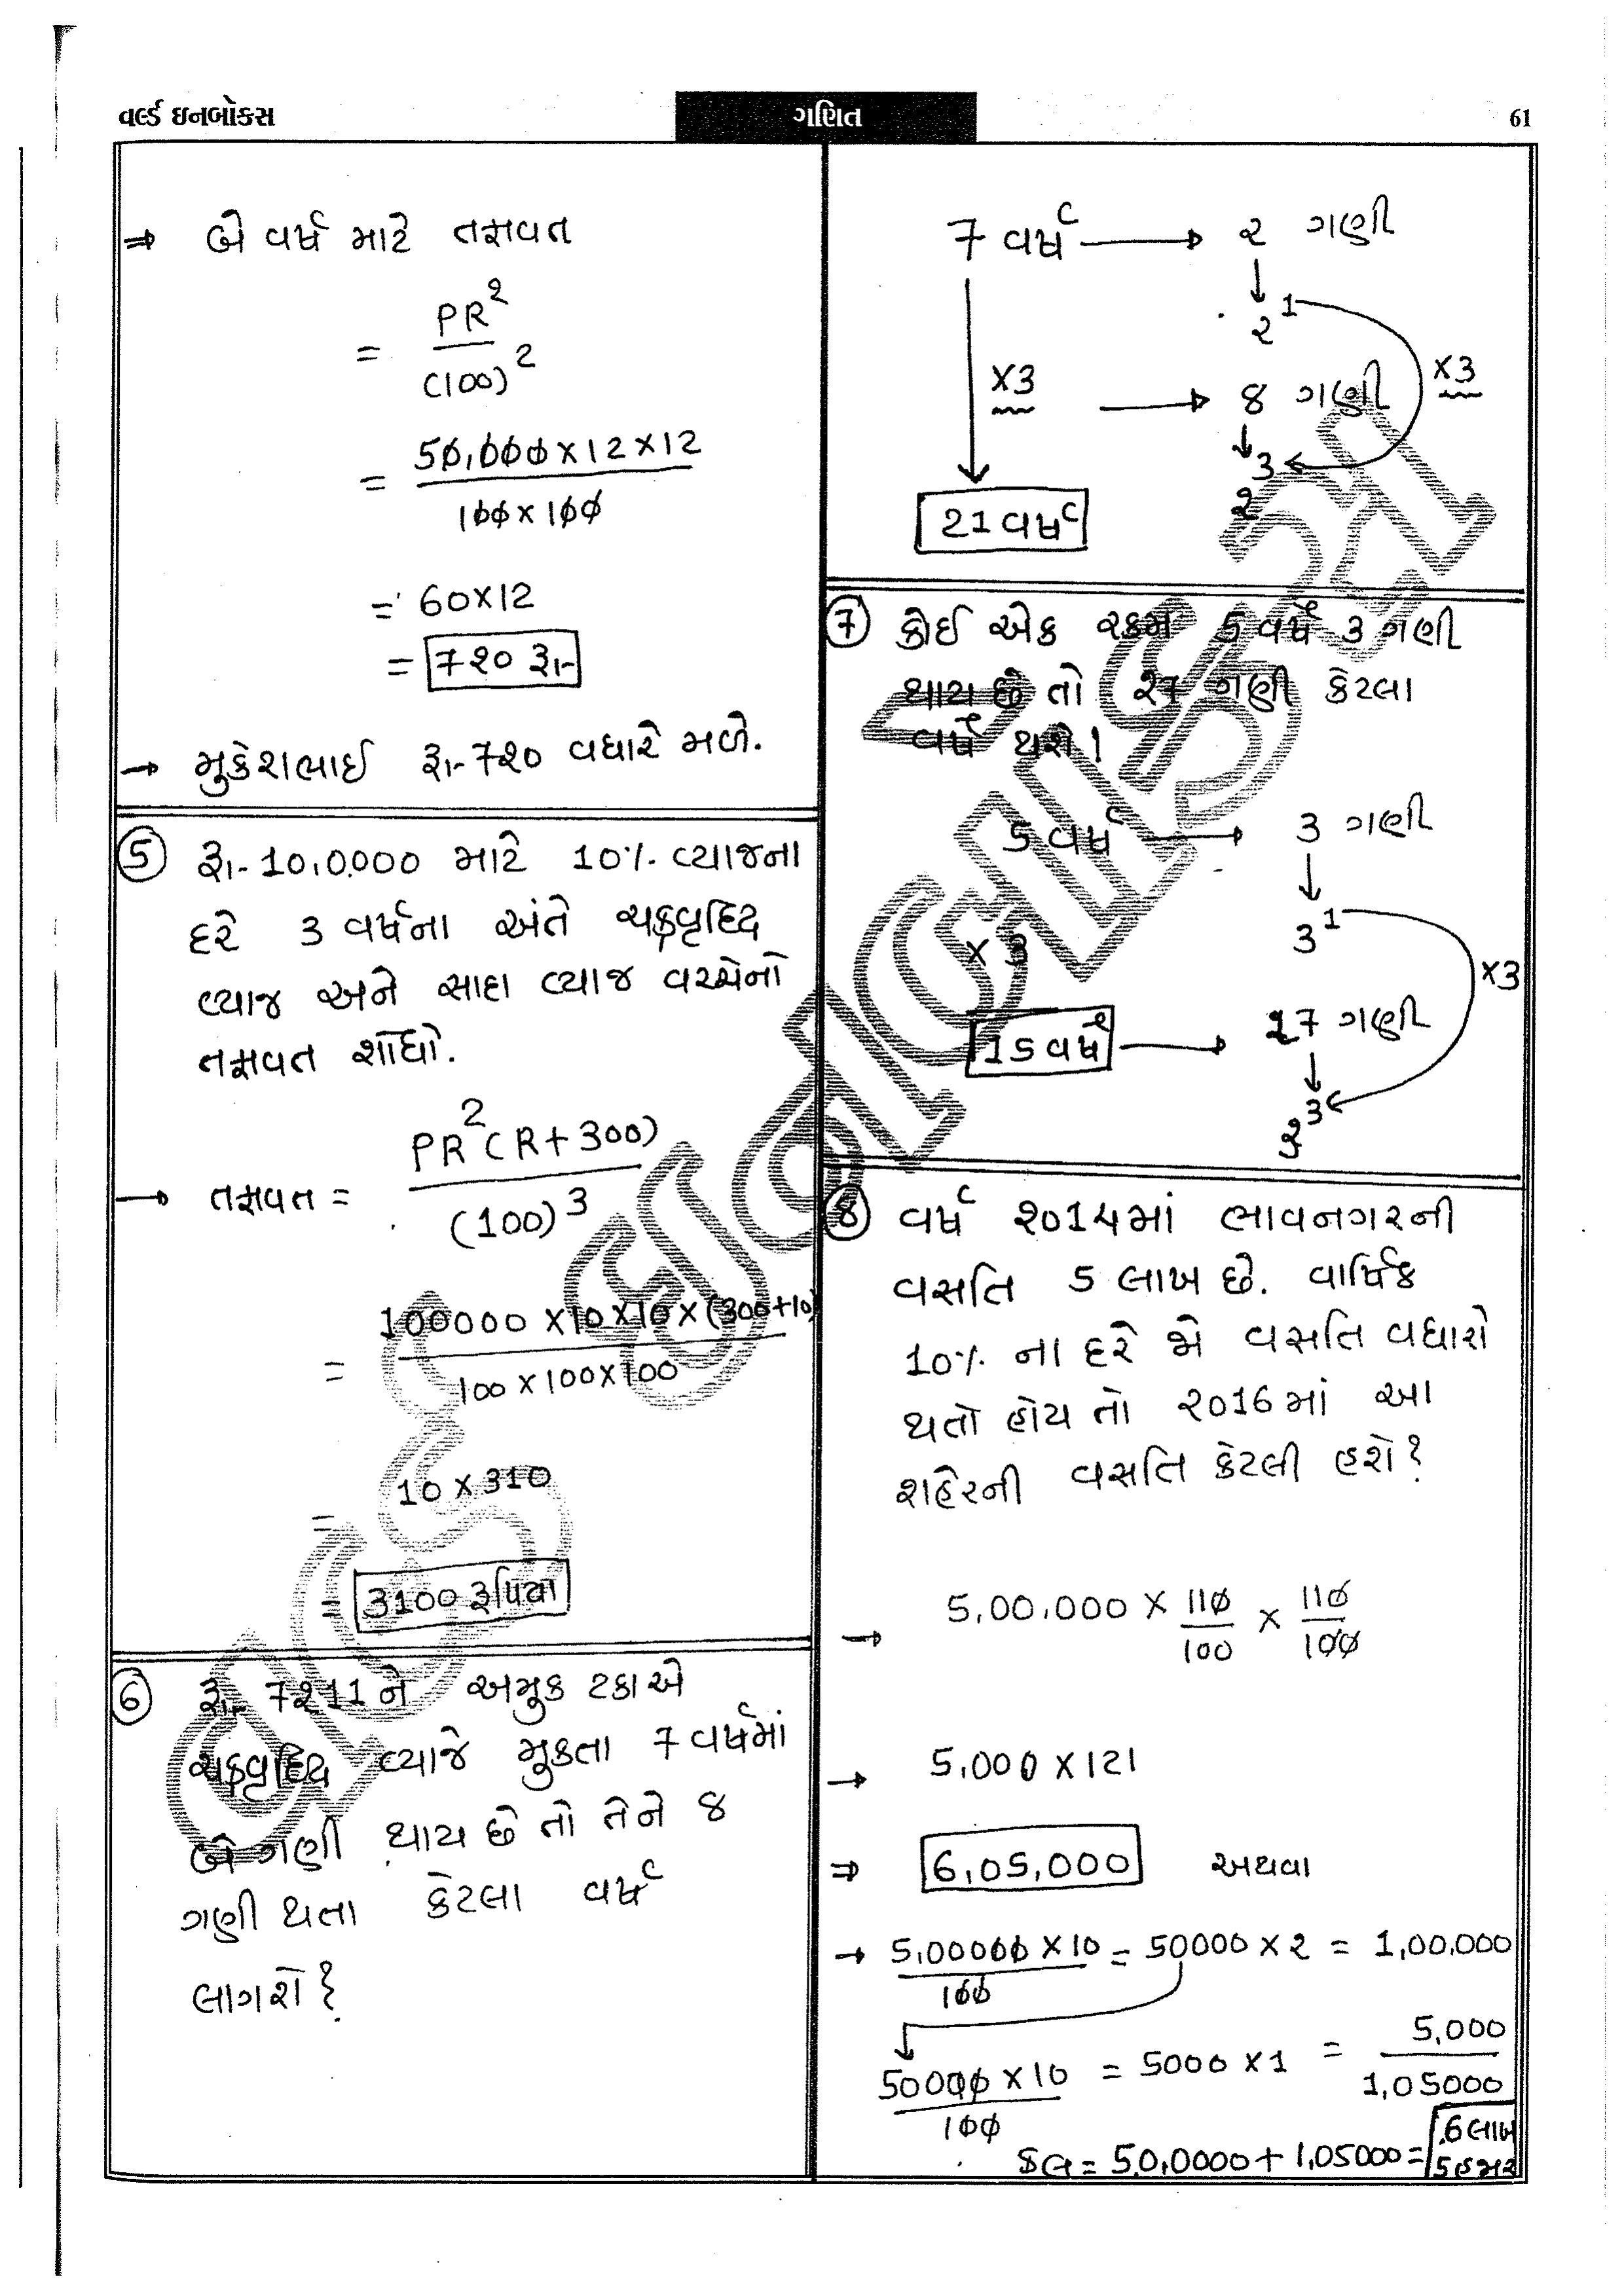 વર્લ્ડ ઇનબોક્સ
ગણિત
61
⇒ બે વર્ષ માટે તફાવત
= PR² / (100)²
= 50,000 × 12 × 12 / 100 × 100
= 60 × 12
= 720 રૂ.
→ મુકેશભાઈ રૂ. 720 વધારે મળે.
(5) રૂ. 10,0,000 માટે 10% વ્યાજના
દરે 3 વર્ષના અંતે ચક્રવૃદ્ધિ
વ્યાજ અને સાદા વ્યાજ વચ્ચેનો
તફાવત શોધો.
→ તફાવત = PR² (R + 300) / (100)³
= 100000 × 10 × 10 × (300 + 10) / 100 × 100 × 100
= 10 × 310
= 3100 રૂપિયા
(6) રૂ. 7211 ને અમુક ટકાએ
ચક્રવૃદ્ધિ વ્યાજે મુકતા 7 વર્ષમાં
બે ગણી થાય છે તો તેને 8
ગણી થતા કેટલા વર્ષ
લાગશે?
7 વર્ષ → 2 ગણી
↓
2¹
×3 → 8 ગણી ×3
↓
2³
21 વર્ષ
(7) કોઈ એક રકમ 5 વર્ષે 3 ગણી
થાય છે તો 27 ગણી કેટલા
વર્ષે થશે!
5 વર્ષ → 3 ગણી
↓
3¹
×3 ×3
15 વર્ષે → 27 ગણી
↓
3³
(8) વર્ષ 2014માં ભાવનગરની
વસતિ 5 લાખ છે. વાર્ષિક
10% ના દરે જો વસતિ વધારો
થતો હોય તો 2016માં આ
શહેરની વસતિ કેટલી હશે?
→ 5,00,000 × 110/100 × 110/100
→ 5,000 × 121
⇒ 6,05,000 અથવા
→ 5,00000 × 10 / 100 = 50000 × 2 = 1,00,000
50000 × 10 / 100 = 5000 × 1 = 5,000 / 1,05000
કુલ = 5,0,0000 + 1,05000 = 6 લાખ
5 હજાર